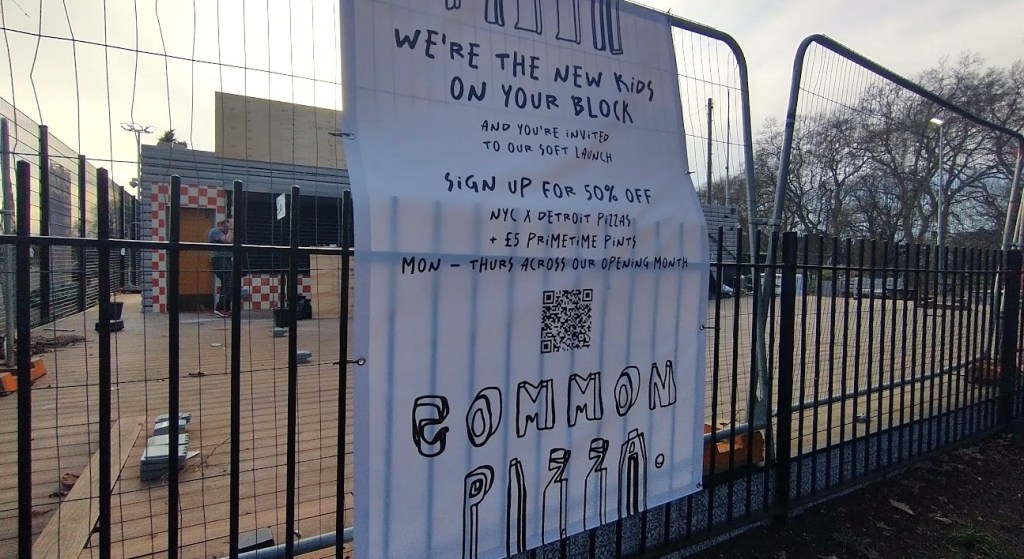 WE'RE THE NEW KiDS
ON YOUR BLOCK
AND YOU'RE iNViTED
TO OUR SOFT LAUNCH
SiGN UP FOR 50% OFF
NYC X DETROiT PiZZAS
+ £5 PRiMETiME PiNTS
MON – THURS ACROSS OUR OPENiNG MONTH
COMMON
PIZZA.